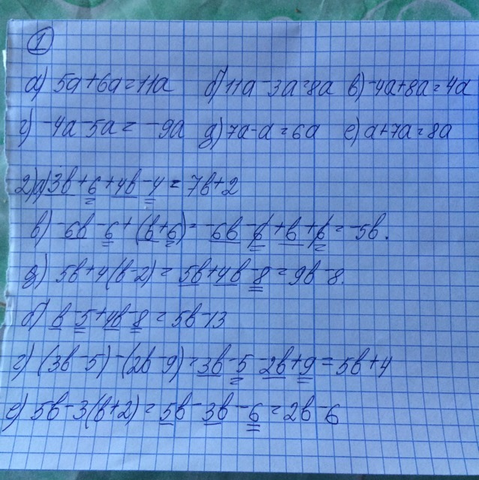 1
а) 5a+6a=11a б) 11a-3a=8a в) -4a+8a=4a
г) -4a-5a=-9a д) 7a-a=6a е) a+7a=8a
2) а) 3b+6+4b-4=7b+2
в) -6b-6+(b+6)=-6b-6+b+6=-5b.
д) 5b+4(b-2)=5b+4b-8=9b-8.
б) b-5+4b-8=5b-13
г) (3b-5)-(2b-9)=3b-5-2b+9=5b+4
е) 5b-3(b+2)=5b-3b-6=2b-6